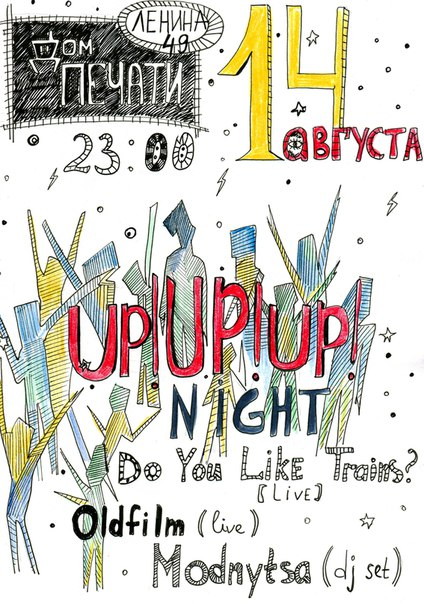 Дом
ПЕЧАТИ
ЛЕНИНА
49
14
АВГУСТА
23:00
UP!UP!UP!
NIGHT
Do You Like Trains?
[LIVE]
Oldfilm (live)
Modnytsa (dj set)